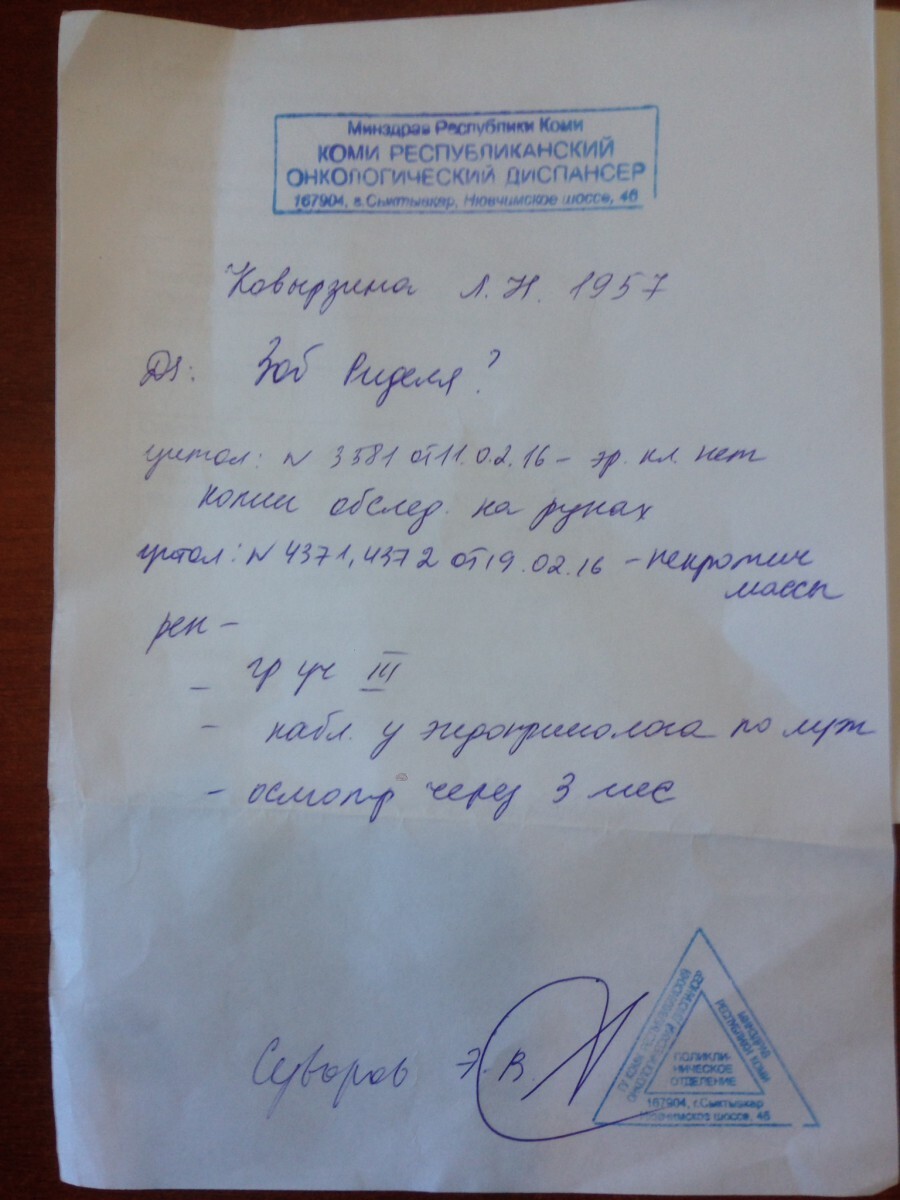 Минздрав Республики Коми
КОМИ РЕСПУБЛИКАНСКИЙ
ОНКОЛОГИЧЕСКИЙ ДИСПАНСЕР
167904, г.Сыктывкар, Нювчимское шоссе, 46
Ковырзина Л.Н. 1957
Ds: Зоб Риделя?
цитол: N 3581 от 11.02.16 – эр. кл. нет
копии обслед. на руках
цитол: N 4371, 4372 от 19.02.16 – некротич
массы
рек –
– гр уч III
– набл. у эндокринолога по м/ж
– осмотр через 3 мес
Суворов Э.В.
ГУ КОМИ РЕСПУБЛИКАНСКИЙ
ОНКОЛОГИЧЕСКИЙ ДИСПАНСЕР
МИНЗДРАВ
РЕСПУБЛИКИ КОМИ
ПОЛИКЛИ-
НИЧЕСКОЕ
ОТДЕЛЕНИЕ
167904, г.Сыктывкар
Нювчимское шоссе, 46